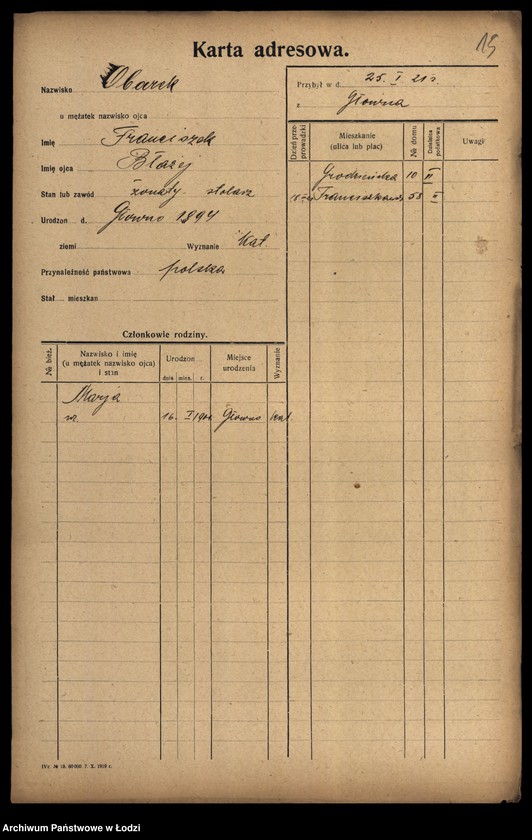 Karta adresowa.
15
Nazwisko Obarek
u mężatek nazwisko ojca
Imię Franciszek
Imię ojca Błażej
Stan lub zawód żonaty stolarz
Urodzon d. Głowno 1894
ziemi Wyznanie Kat.
Przynależność państwowa polska
Stał mieszkan
Przybył w d. 25. I 21 r
z Główna
Dzień przeprowadzki
Mieszkanie
(ulica lub plac)
№ domu
Dzielnica podatkowa
Uwagi
10 II
Franciszkańska 58 II
Członkowie rodziny.
№ bież.
Nazwisko i imię
(u mężatek nazwisko ojca)
i stan
Urodzon
dnia mies. r.
Miejsce
urodzenia
Wyznanie
Marja
16. I Głowno Kat.
IVc № 10. 60000 7. X. 1919 r.
Archiwum Państwowe w Łodzi